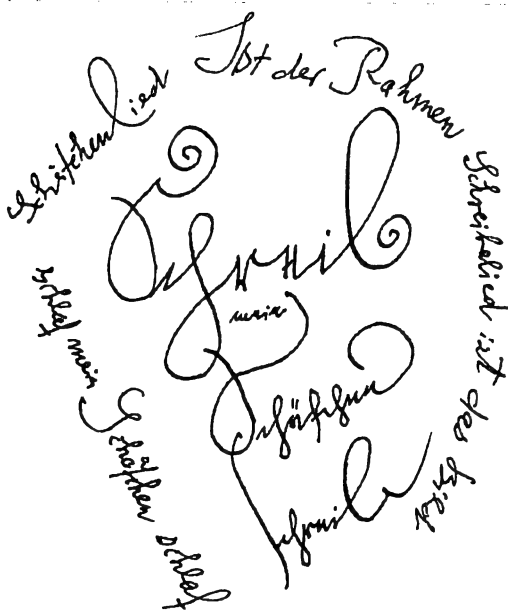 Schäfchenlied
Ist der Rahmen
Schreibelied ist das Bild
Schreib
mein
Schäfchen
schreib
schlaf mein Schäfchen schlaf